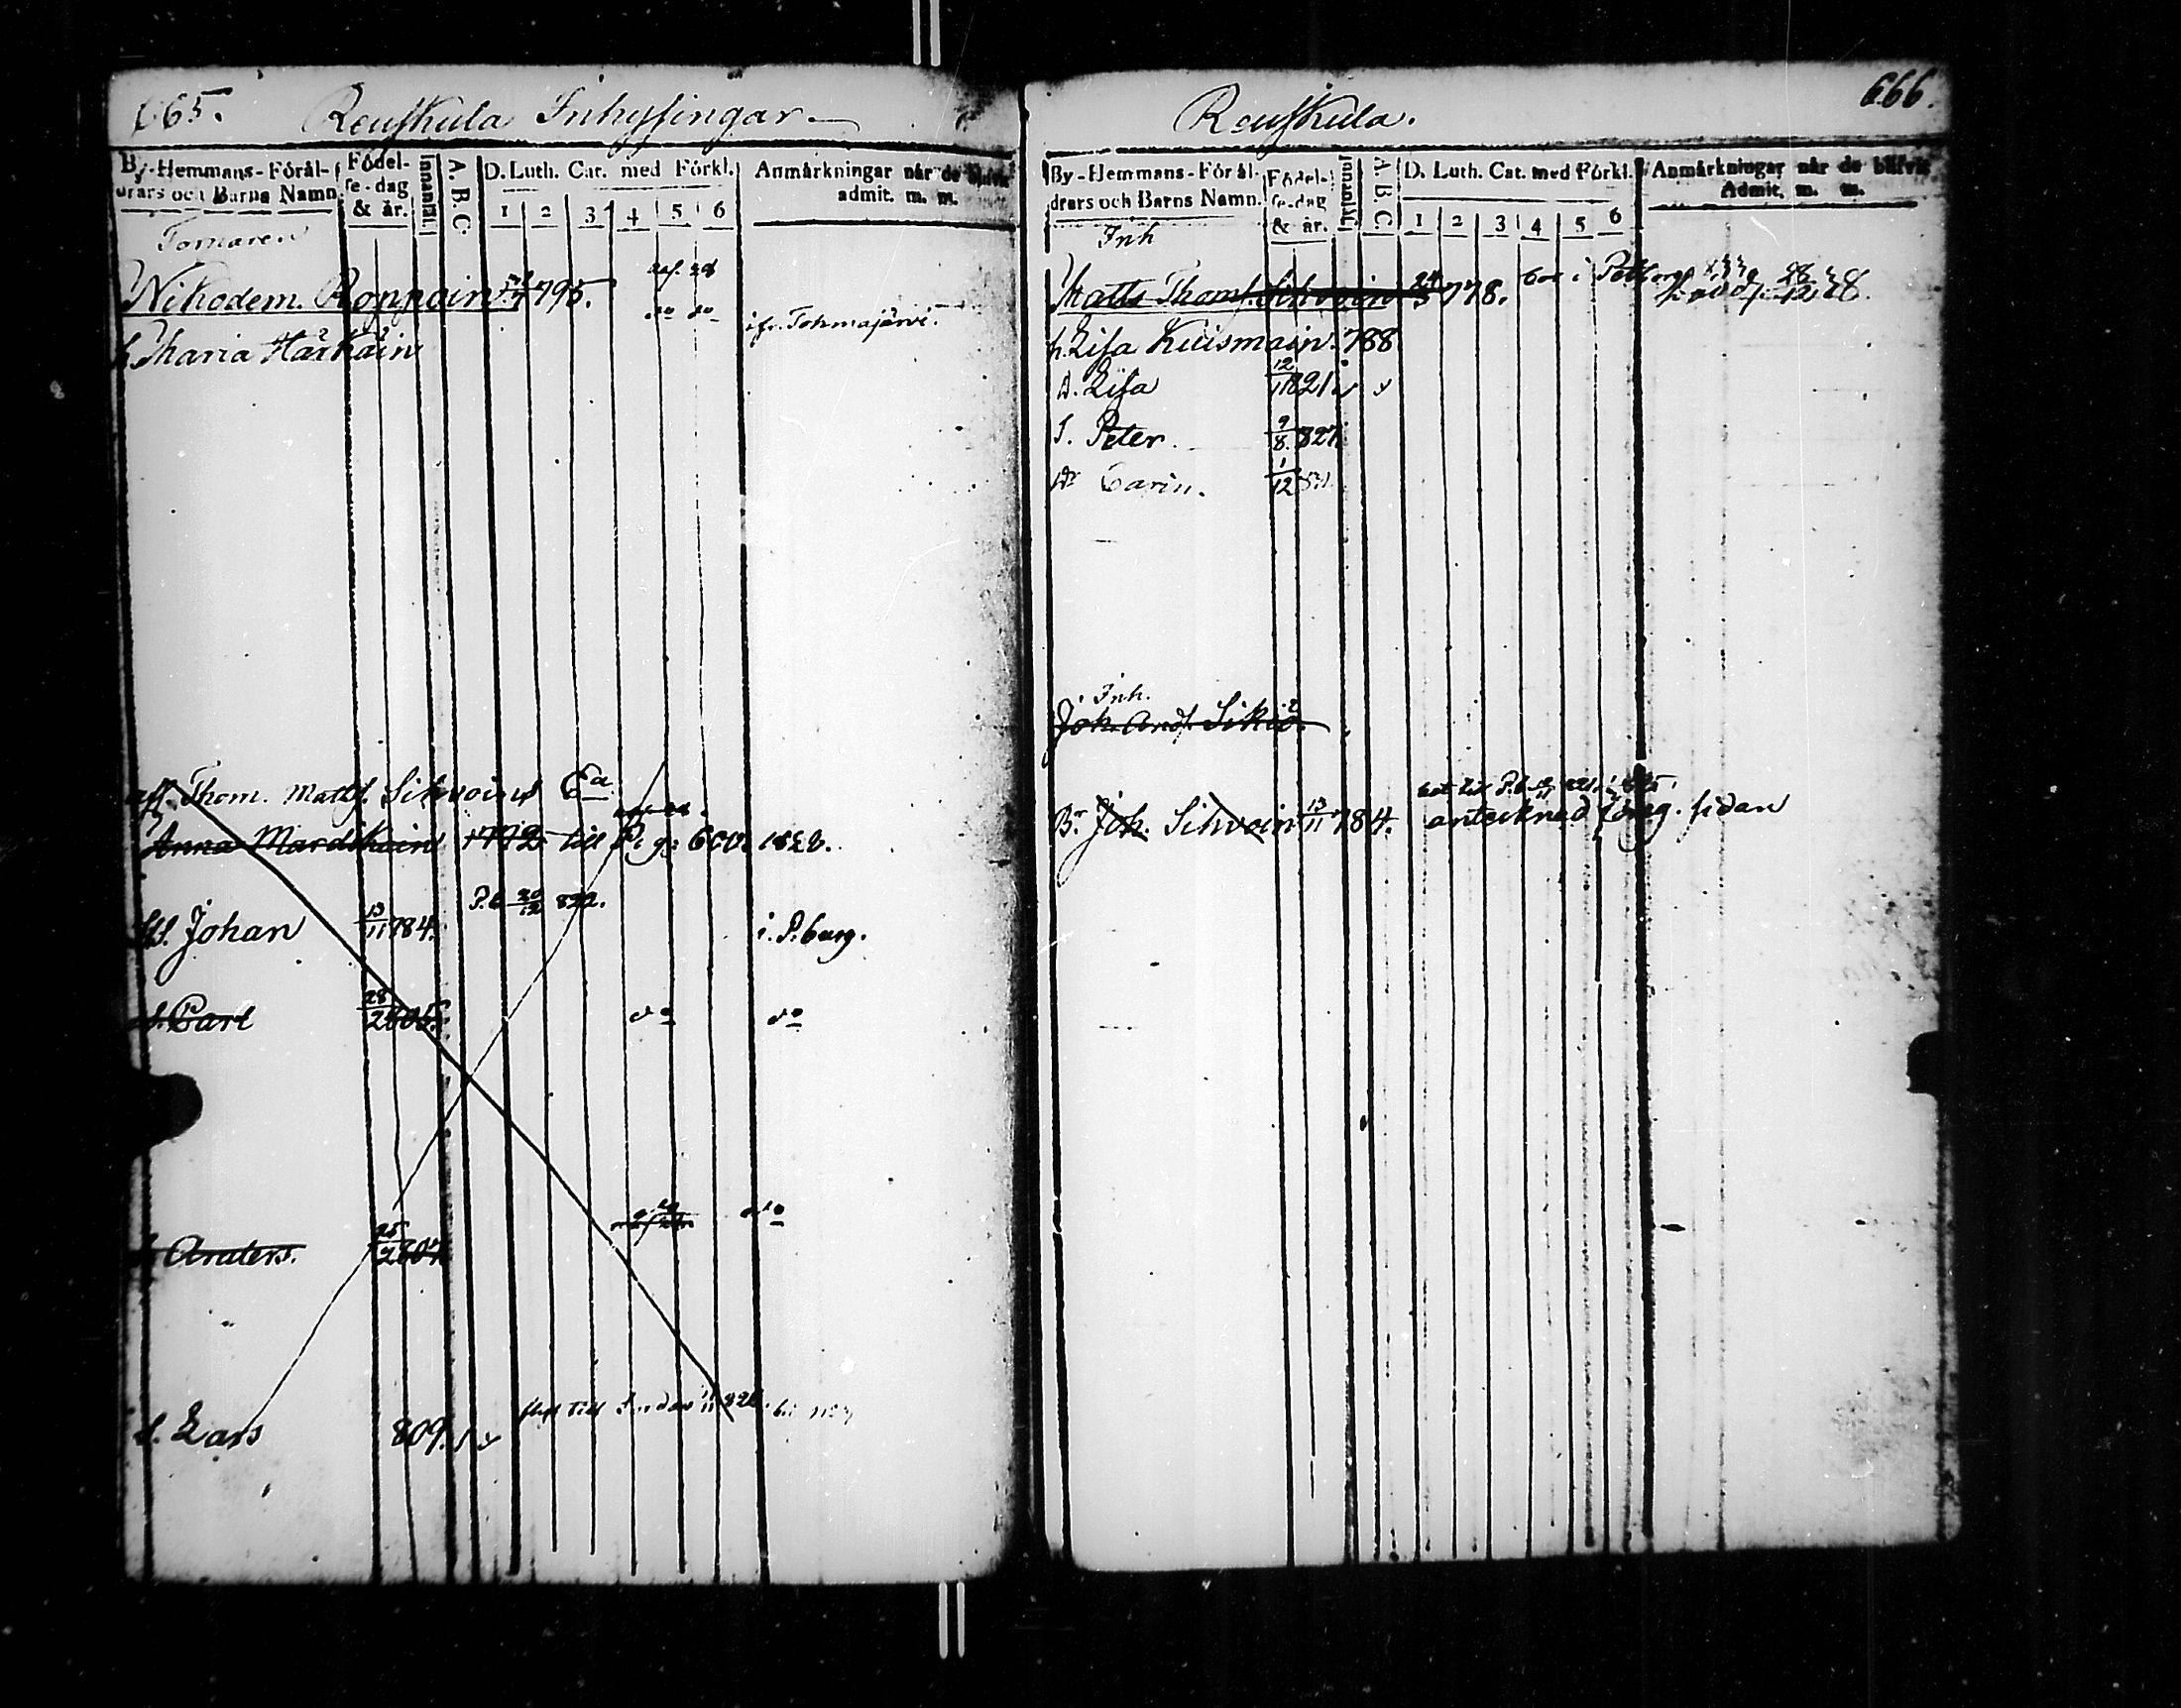 665.
Reuskula Inhysingar
By-Hemmans-Föräl-
drars och Barns Namn.
Födel-
se-dag
& år.
Innantill.
A. B. C.
D. Luth. Cat. med Förkl.
1 2 3 4 5 6
Anmärkningar når de blifvit
admit. m. m.
Nikodem. Roppoin 795.
do do
Maria Härkäin
ifr. Tohmajärvi.
Thom. Matts. Silvoins Ea
Anna Mardikain 1772 till Pag. 600. 1832.
P.b. 20/12 822.
Johan 13/11 784. i. P.burg.
s. Carl 28/2 805. do do
Anders. 25/2 807 do
s. Lars 809.
666.
Reuskula.
By-Hemmans-Föräl-
drars och Barns Namn.
Födel-
se-dag
& år.
A. B. C.
D. Luth. Cat. med Förkl.
1 2 3 4 5 6
Anmärkningar når de blifvit
Admit. m. m.
Inh
Matts Thoms. Silvoin 24/3 778.
h. Lisa Kuismain. 788
D. Lisa 12/11 821.
S. Peter. 9/8. 827.
Dr Carin. 1/12
Inh.
Joh. And. Sikiö
Br. Joh. Silvoin 13/11 784. antecknad föreg. sidan